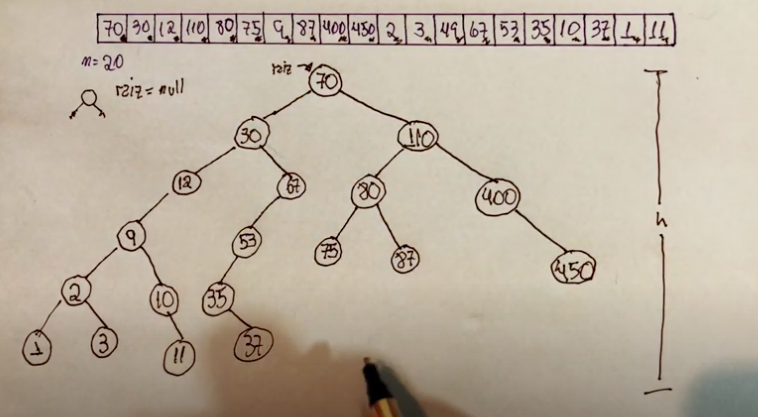 70 30 12 110 80 75 9 87 400 450 2 3 49 67 53 35 10 37 1 11
n=20
raiz = null
raiz → 70
30 110
12 67 80 400
9 53 75 87 450
2 10 35
1 3 11 37
h